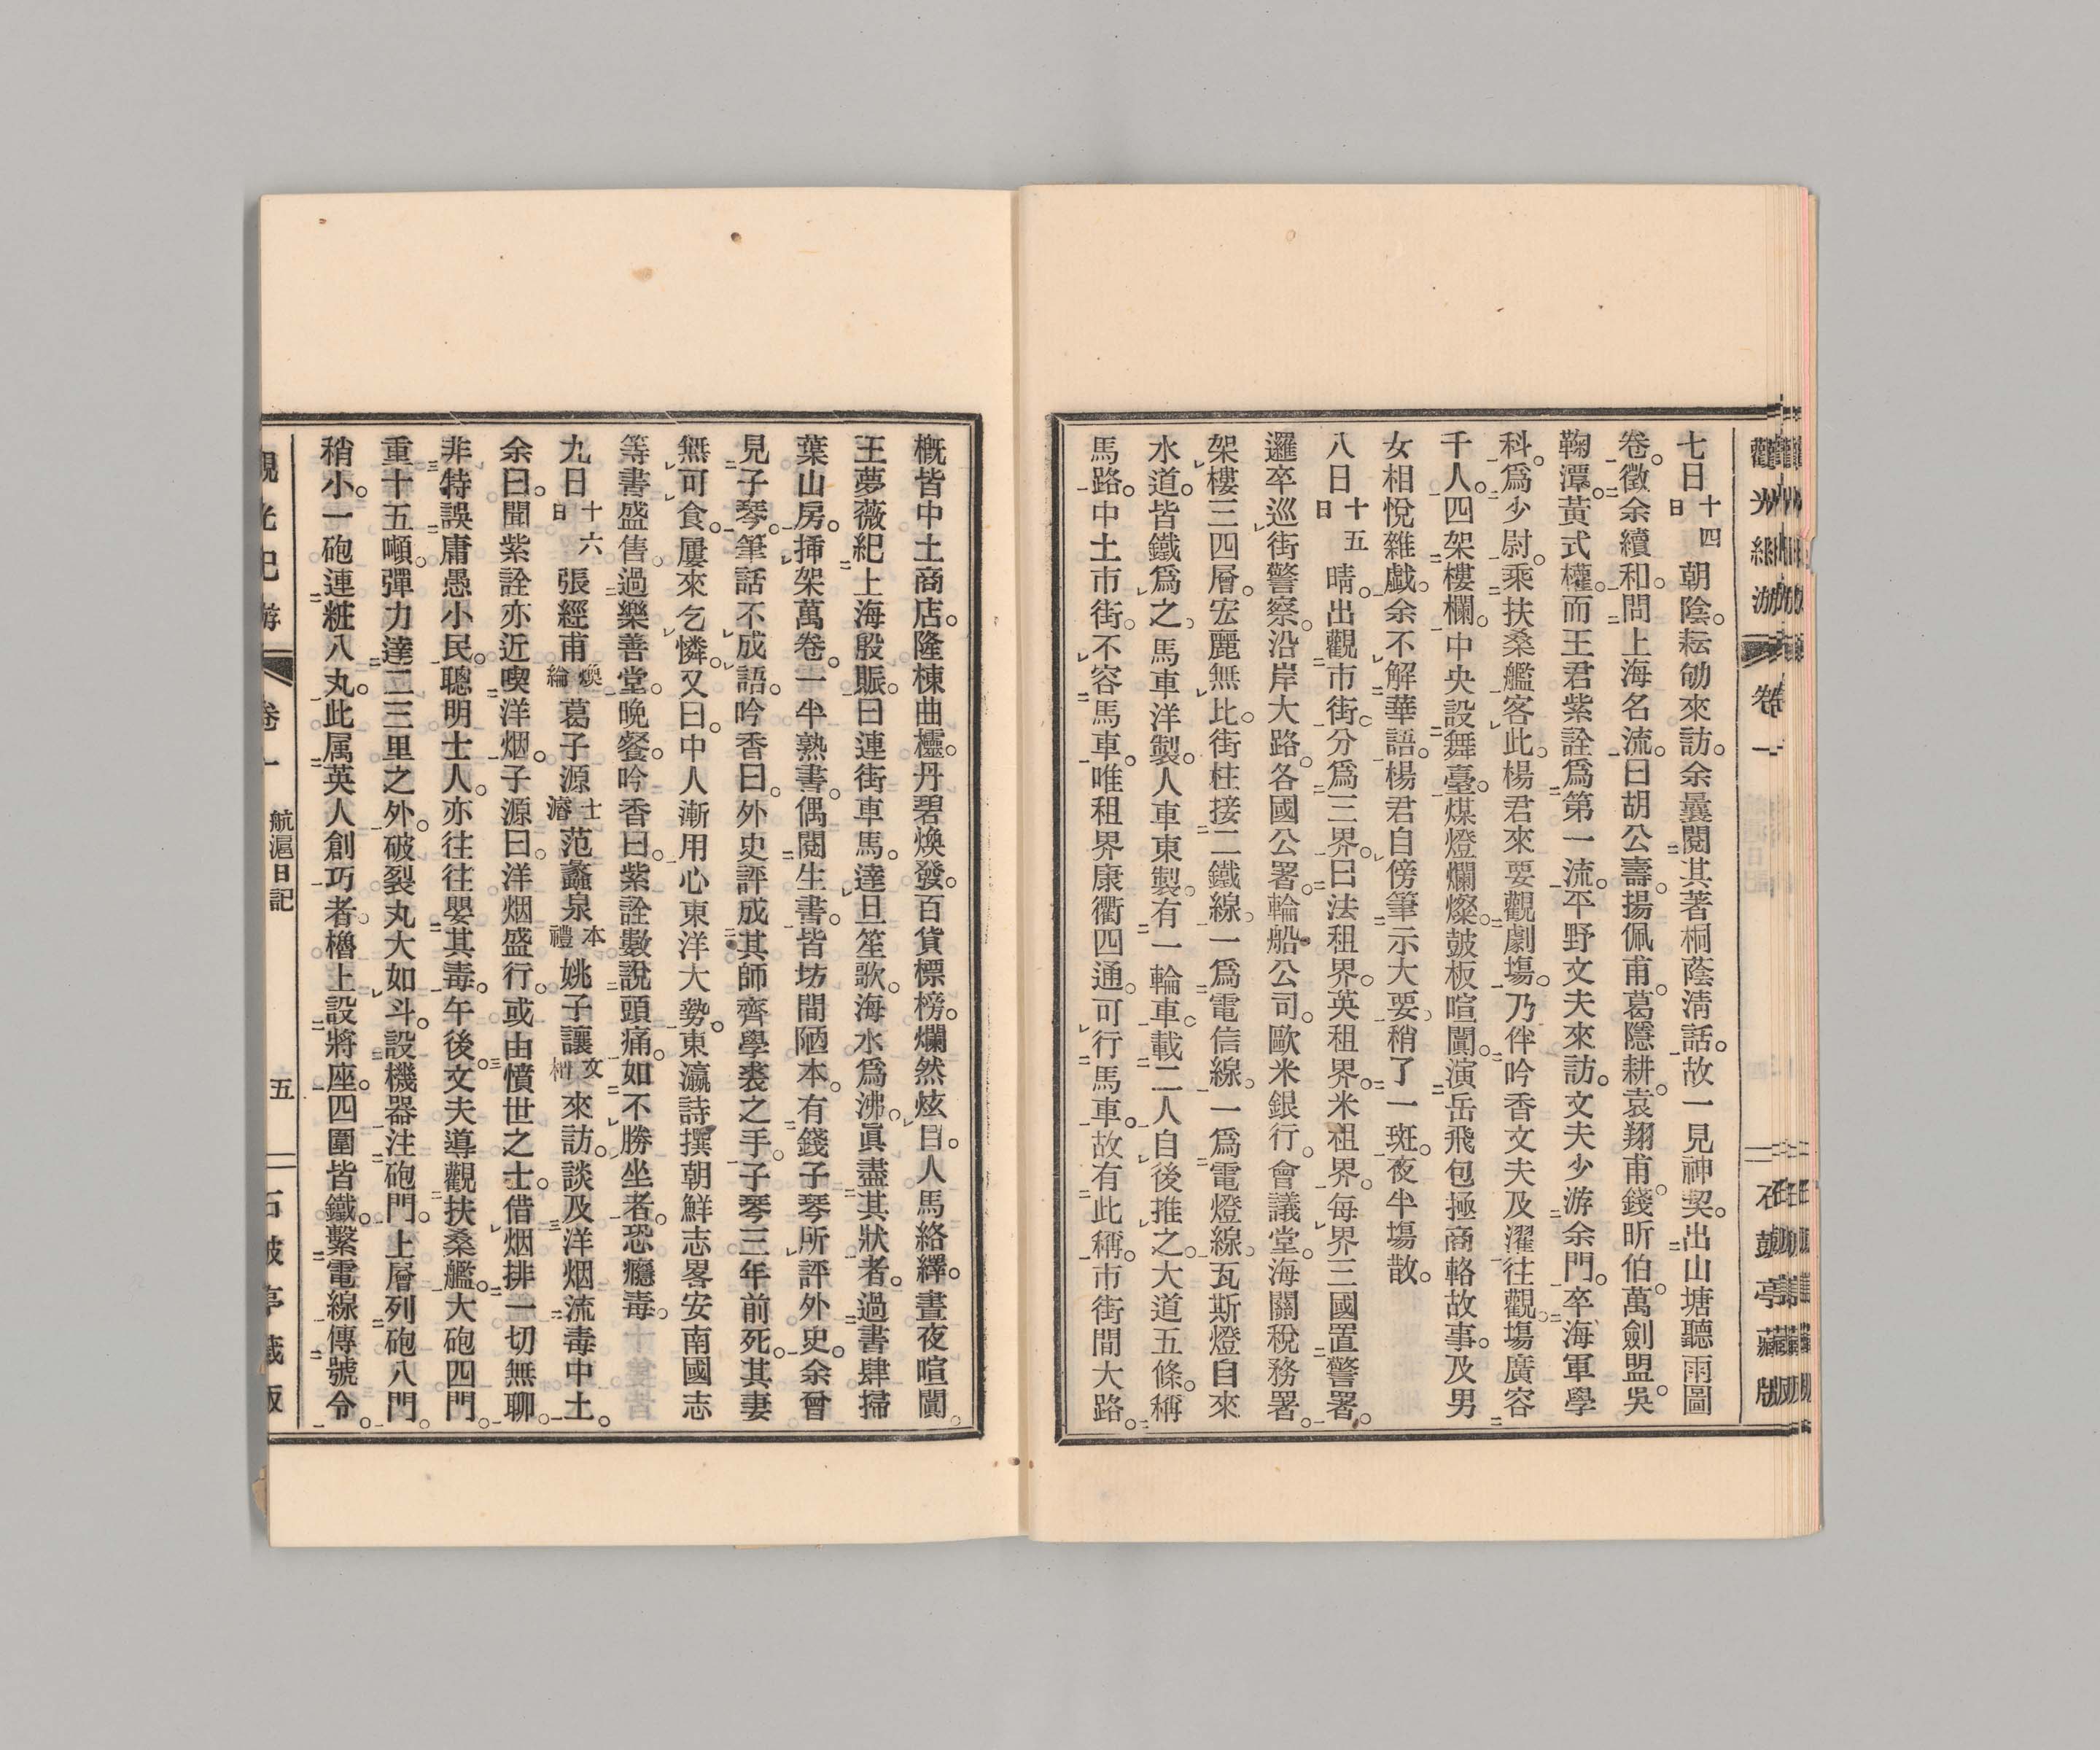 七日十四日朝陰。耘劬來訪。余曩閱其著桐蔭清話。故一見神契。出山塘聽雨圖
卷。徵余續和。問上海名流。曰胡公壽。揚佩甫。葛隱耕。袁翔甫。錢昕伯。萬劍盟。吳
鞠潭。黃式權。而王君紫詮爲第一流。平野文夫來訪。文夫少游余門。卒海軍學
科。爲少尉。乘扶桑艦客此。楊君來要觀劇塲。乃伴吟香文夫及濯往觀。塲廣容
千人。四架樓欄。中央設舞臺。煤燈爛燦。鼓板喧闐。演岳飛包拯商輅故事。及男
女相悅雜戯。余不解華語。楊君自傍筆示大要。稍了一斑。夜半塲散。
八日十五日晴。出觀市街。分爲三界。曰法租界。英租界。米租界。每界三國置警署。
邏卒巡街警察。沿岸大路。各國公署。輪船公司。歐米銀行。會議堂。海關稅務署。
架樓三四層。宏麗無比。街柱接二鐵線。一爲電信線。一爲電燈線。瓦斯燈自來
水道。皆鐵爲之。馬車洋製。人車東製。有一輪車。載二人自後推之。大道五條。稱
馬路。中土市街。不容馬車。唯租界康衢四通。可行馬車。故有此稱。市街間大路。
概皆中土商店。隆棟曲櫺。丹碧煥發。百貨標榜。爛然炫目。人馬絡繹。晝夜喧闐。
王夢薇紀上海殷賑。曰連街車馬。達旦笙歌。海水爲沸。眞盡其狀者。過書肆掃
葉山房。揷架萬卷。一半熟書。偶閱生書。皆坊間陋本。有錢子琴所評外史。余曾
見子琴。筆話不成語。吟香曰。外史評成其師齊學裘之手。子琴三年前死。其妻
無可食。屢來乞憐。又曰。中人漸用心東洋大勢。東瀛詩撰朝鮮志畧安南國志
等書盛售。過樂善堂。晩餐。吟香曰。紫詮數說頭痛。如不勝坐者。恐癮毒。
九日十六日張經甫煥綸葛子源士濬范蠡泉本禮姚子讓文枏來訪。談及洋烟流毒中土。
余曰。聞紫詮亦近喫洋烟。子源曰。洋烟盛行。或由憤世之士。借烟排一切無聊。
非特誤庸愚小民。聰明士人。亦往往嬰其毒。午後。文夫導觀扶桑艦。大砲四門。
重十五噸。彈力達二三里之外。破裂丸大如斗。設機器注砲門。上層列砲八門。
稍小。一砲連粧八丸。此属英人創巧者。櫓上設將座。四圍皆鐵。繫電線傳號令。
卷一 航滬日記 五